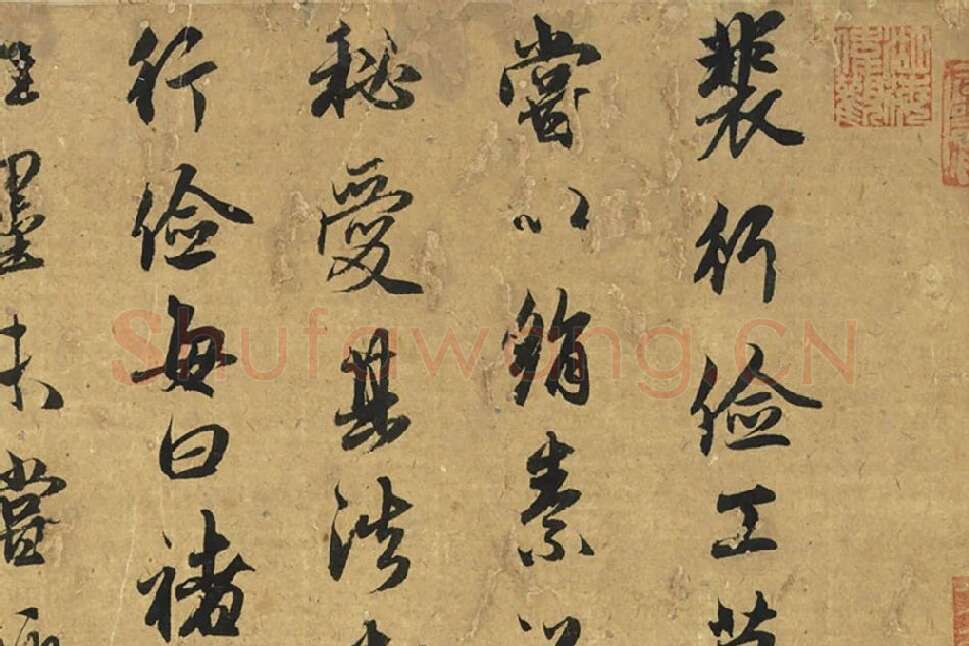 裴行儉工草
嘗以絹素
秘愛其法
行儉每曰褚
墨未嘗
Shufawang.CN